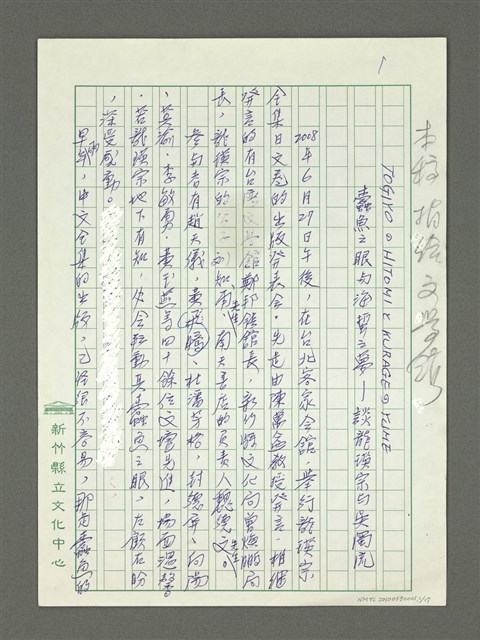 1
本稿捐給文學館
TOGIYO の HITOMI と KURAGE の YUME
蠹魚之眼与海蜇之夢—談龍瑛宗与吳濁流
2008年6月27日午後,在台北客家会館舉行龍瑛宗
全集日文卷的出版発表会。先是由陳萬益教授発言,相継
発言的有台文学館鄭邦鎮館長,新竹縣文化局曾煥鵬局
長,龍瑛宗的劉知甫先生、南天書店的負責人魏德文先生。
参与者有趙天儀,黃,杜潘芳格,封德屏,向陽
,莫渝,李敏勇,黃玉燕等四十餘位文壇先進,場面温馨
。若龍瑛宗地下有知,必会転動其蠹魚之眼,左顧右盼
,深受感動。
早期中文全集的出版,已経很不容易,那是蠹魚的
新竹縣立文化中心